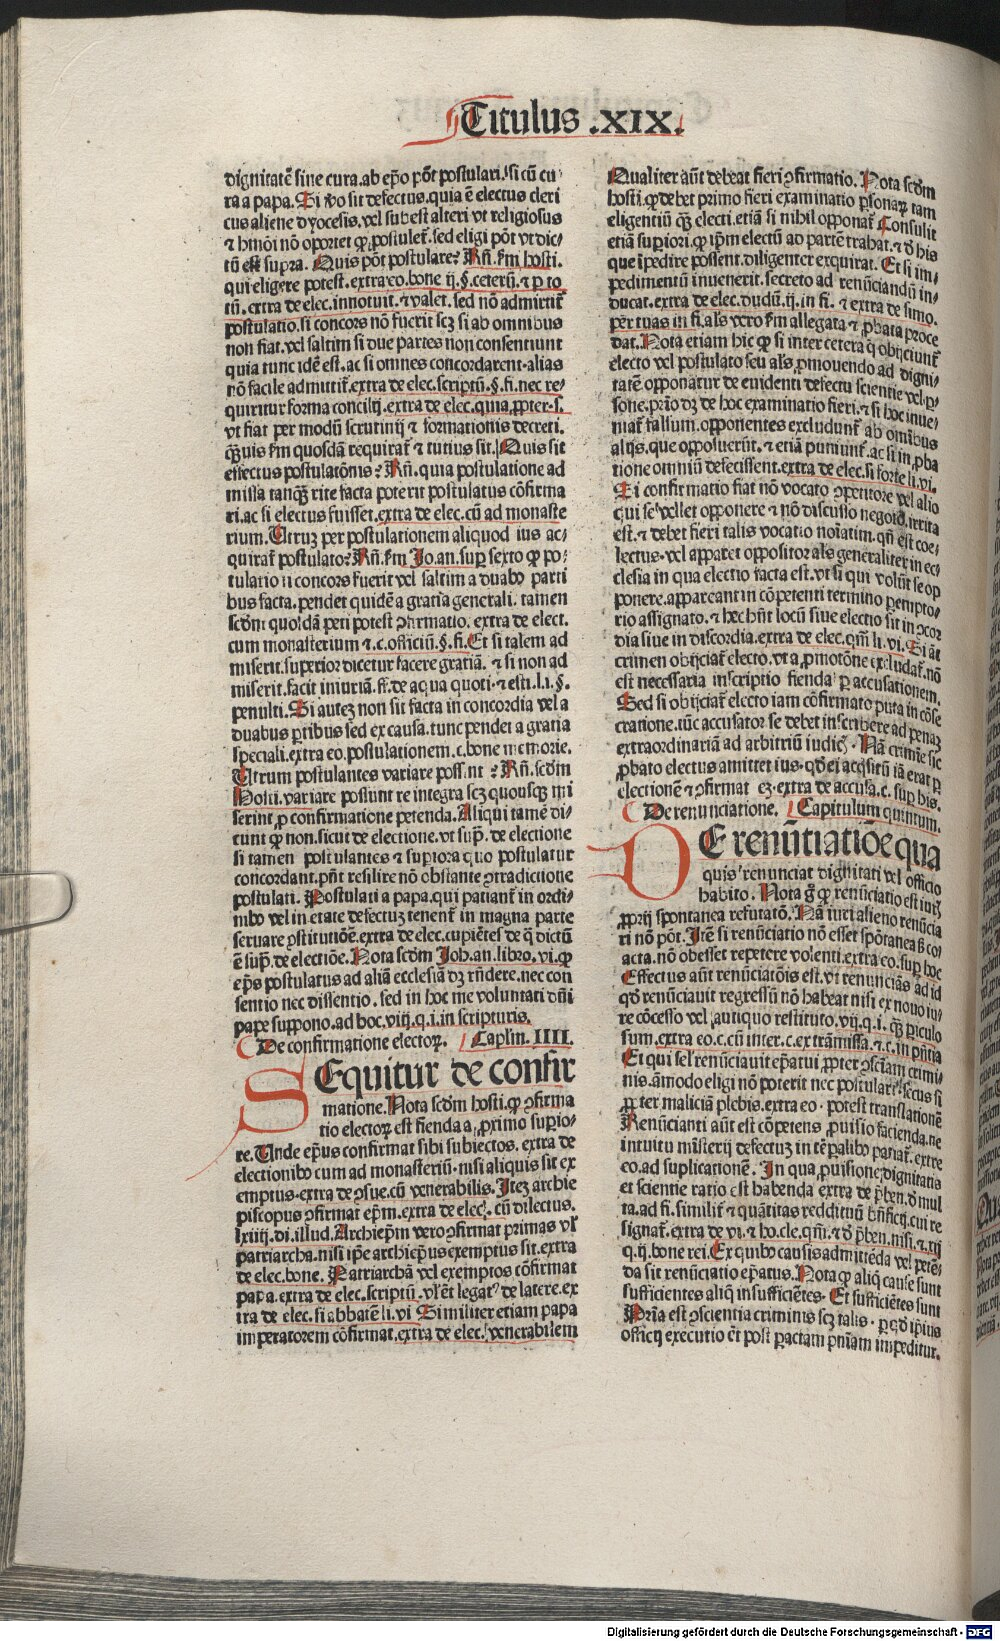 Titulus .XIX.
dignitatē sine cura.ab epo pōt postulari.si cū cu
ra a papa. Si vo sit defectus.quia ē electus cleri
cus aliene dyocesis.vel subest alteri vt religiosus
⁊ hmōi nō oportet ꝙ postulet᷑.sed eligi pōt vt dic/
tū est supra. Quis pōt postulare? Rñ. ẜm hosti.
qui eligere potest.extra eo.bone ij.§.ceterū.⁊ ꝑ to
tū.extra de elec.innotuit.⁊ valet. sed nō admittit᷑
postulatio.si concors nō fuerit scʒ si ab omnibus
non fiat.vel saltim si due partes non consentiunt
quia tunc idē est.ac si omnes concordarent.alias
nō facile admittit᷑.extra de elec.scriptū.§.fi.nec re/
quiritur forma concilij.extra de elec.quia ꝓpter.s.
vt fiat per modū scrutinij ⁊ formationis decreti.
q̄ꝫuis ẜm quosdā requirat᷑ ⁊ tutius sit. Quis sit
effectus postulatōnis? Rñ. quia postulatione ad
missa tanqꝫ rite facta poterit postulatus cōfirma
ri.ac si electus fuisset.extra de elec.cū ad monaste
rium. Utruʒ per postulationem aliquod ius ac/
quirat᷑ postulato? Rñ. ẜm Jo.an.suꝑ sexto ꝙ po/
tulatio si concors fuerit vel saltim a duabꝰ parti
bus facta. pendet quidē a gratia generali. tamen
scdm quosdā peti potest ꝯfirmatio. extra de elect.
cum monasterium ⁊.c.officiū.§.fi. Et si talem ad
miserit.superior dicetur facere gratiā. ⁊ si non ad
miserit.facit iniuriā.ff.de aqua quoti.⁊ esti.l.i.§.
penulti. Si autez non sit facta in concordia vel a
duabus ꝑtibus sed ex causa.tunc pendet a gratia
speciali.extra eo.postulationem.c.bone memorie.
Utrum postulantes variare possunt ? Rñ. scdm
Hosti.variare possunt re integra scʒ quousqꝫ mi
serint ꝓ confirmatione petenda. Aliqui tamē di/
cunt ꝙ non.sicut de electione.vt supͣ. de electione
si tamen postulantes ⁊ supiora quo postulatur
concordant.pn̄t resilire nō obstante ꝯtradictione
postulati. Postulati a papa.qui patiant᷑ in ordi/
nibꝰ vel in etate defectuʒ tenent᷑ in magna parte
seruare ꝯstitutiōē.extra de elec.cupiētes de q̄ dictū
ē supͣ. de electiōe. Nota scdm Joh.an.libro.vi.ꝙ
eps postulatus ad aliā ecclesiā dʒ rn̄dere.nec con
sentio nec dissentio. sed in hoc me voluntati dn̄i
pape suppono.ad hoc.viij.q.i.in scripturis.
De confirmatione electoꝝ. Caplm. IIII.
SEquitur de confir
matione. Nota scdm hosti.ꝙ ꝯfirma
tio electoꝝ est fienda a ꝓximo supio/
re. Unde epus confirmat sibi subiectos. extra de
electionibꝰ cum ad monasteriū.nisi aliquis sit ex
emptus.extra de ꝯsue.cū venerabilis. Iteʒ archie
piscopus ꝯfirmat epm.extra de elec. cū dilectus.
lxiiij.di.illud. Archiepm vero ꝯfirmat primas vl'
patriarcha.nisi ipe archiepus exemptus sit.extra
de elec.bone. Patriarchā vel exemptos cōfirmat
papa.extra de elec.scriptū .vl' ēt legatꝰ de latere.ex
tra de elec.si abbatē li.vi Similiter etiam papa
imperatorem cōfirmat.extra de elec.venerabilem
Qualiter aūt debeat fieri ꝯfirmatio. Nota scdm
hosti.ꝙ debet primo fieri examinatio ꝑsonaꝝ tam
eligentiū qꝫ electi.etiā si nihil opponat᷑ Consulit
etiā supiori.ꝙ ipm electū ad partē trahat.⁊ ꝺ his
que īpedire possent.diligenter exquirat. Et si im/
pedimentū inuenerit.secreto ad renūciandū in/
ducat.extra de elec.dudū.ij.in fi. ⁊ extra de simo.
per tuas in fi.als vero ẜm allegata ⁊ ꝓbata proce
dat. Nota etiam hic ꝙ si inter cetera q̄ obijciunt᷑
electo vel postulato seu als ꝓmouendo ad digni/
tatē opponatur de euidenti defectu scientie vel ꝑ/
sone.prīo dʒ de hoc examinatio fieri.⁊ si hoc inue/
niat᷑ falsum.opponentes excludunt᷑ ab omībus
alijs.que opposuerūt.⁊ etiā puniunt᷑.ac si in ꝓba
tione omniū defecissent.extra de elec.si forte li.vi.
Si confirmatio fiat nō vocato ꝯpetitore vel alio
qui se vellet opponere ⁊ nō discusso negotō.irrita
est.⁊ debet fieri talis vocatio noīatim.qn̄ est coe/
lectus.vel apparet oppositor als generaliter in ec/
clesia in qua electio facta est.vt si qui volūt se op
ponere.appareant in cōpetenti termino peremptо/
rio assignato.⁊ hec hn̄t locū siue electio sit in ꝯcor
dia siue in discordia.extra de elec.qm̄ li.vi. Si aūt
crimen obijciat᷑ electo.vt a ꝓmotōne excludat᷑.nō
est necessaria inscriptio fienda ꝑ accusationem.
Sed si obijciat᷑ electo iam cōfirmato puta in cōse
cratione.tūc accusator se debet inscribere ad penaʒ
extraordinariā ad arbitriū iudicꝭ. Nā crimīe sic
ꝓbato electus amittet ius.qd ei acqsitū iā erat ꝑ
electionē ⁊ ꝯfirmat eʒ.extra de accusa.c. suꝑ his.
De renunciatione. Capitulum quintum.
DE renūtiatiōe qua
quis renunciat dignitati vel officio
habito. Nota g̊ ꝙ renūciatio est iurꝭ
ꝓprij spontanea refutatō. Nā iuri alieno renūcia
ri nō pōt. Itē si renūciatio nō esset spōtanea ß co/
acta.nō obesset repetere volenti.extra eo.suꝑ hoc
Effectus aūt renūciatōis est.vt renunciās ad id
qd renūciauit regressū nō habeat nisi ex nouo iu/
re cōcesso vel antiquo restituto.vij.q.i. qꝫ ꝑiculo
sum.extra eo.c.cū inter.c.ex trāmissa.⁊.c.in pn̄tia
Et qui sel renūciauit epatui ꝓpter ꝯsciam crimi/
nis.āmodo eligi nō poterit nec postulari.secus si
ꝓpter maliciā plebis.extra eo. potest translationē
Renūcianti aūt est cōpetens ꝓuisio facienda.ne
intuitu mīsterij defectuʒ in tēꝑalibꝰ patiat᷑.extra
eo.ad suplicationē. In qua ꝓuisione dignitatis
et scientie ratio est habenda extra de pben.ꝺ mul
ta.ad fi.similit᷑ ⁊ quātitas reddituū bn̄ficij.cui re
signat᷑.extra de vi.⁊ ho.cle.qm̄.⁊ ꝺ pben.nisi.⁊.xij
q.ij.bone rei. Ex quibꝰ causis admittēda vel petē/
da sit renūciatio epatus. Nota ꝙ aliq̄ cause sunt
sufficientes aliq̄ insufficiētes. Et sufficiētes sunt
Pria est ꝯscientia criminis scʒ talis . ꝑ qd ipsius
officij executio ēt post ꝑactam pniam impeditur.
Digitalisierung gefördert durch die Deutsche Forschungsgemeinschaft - DFG